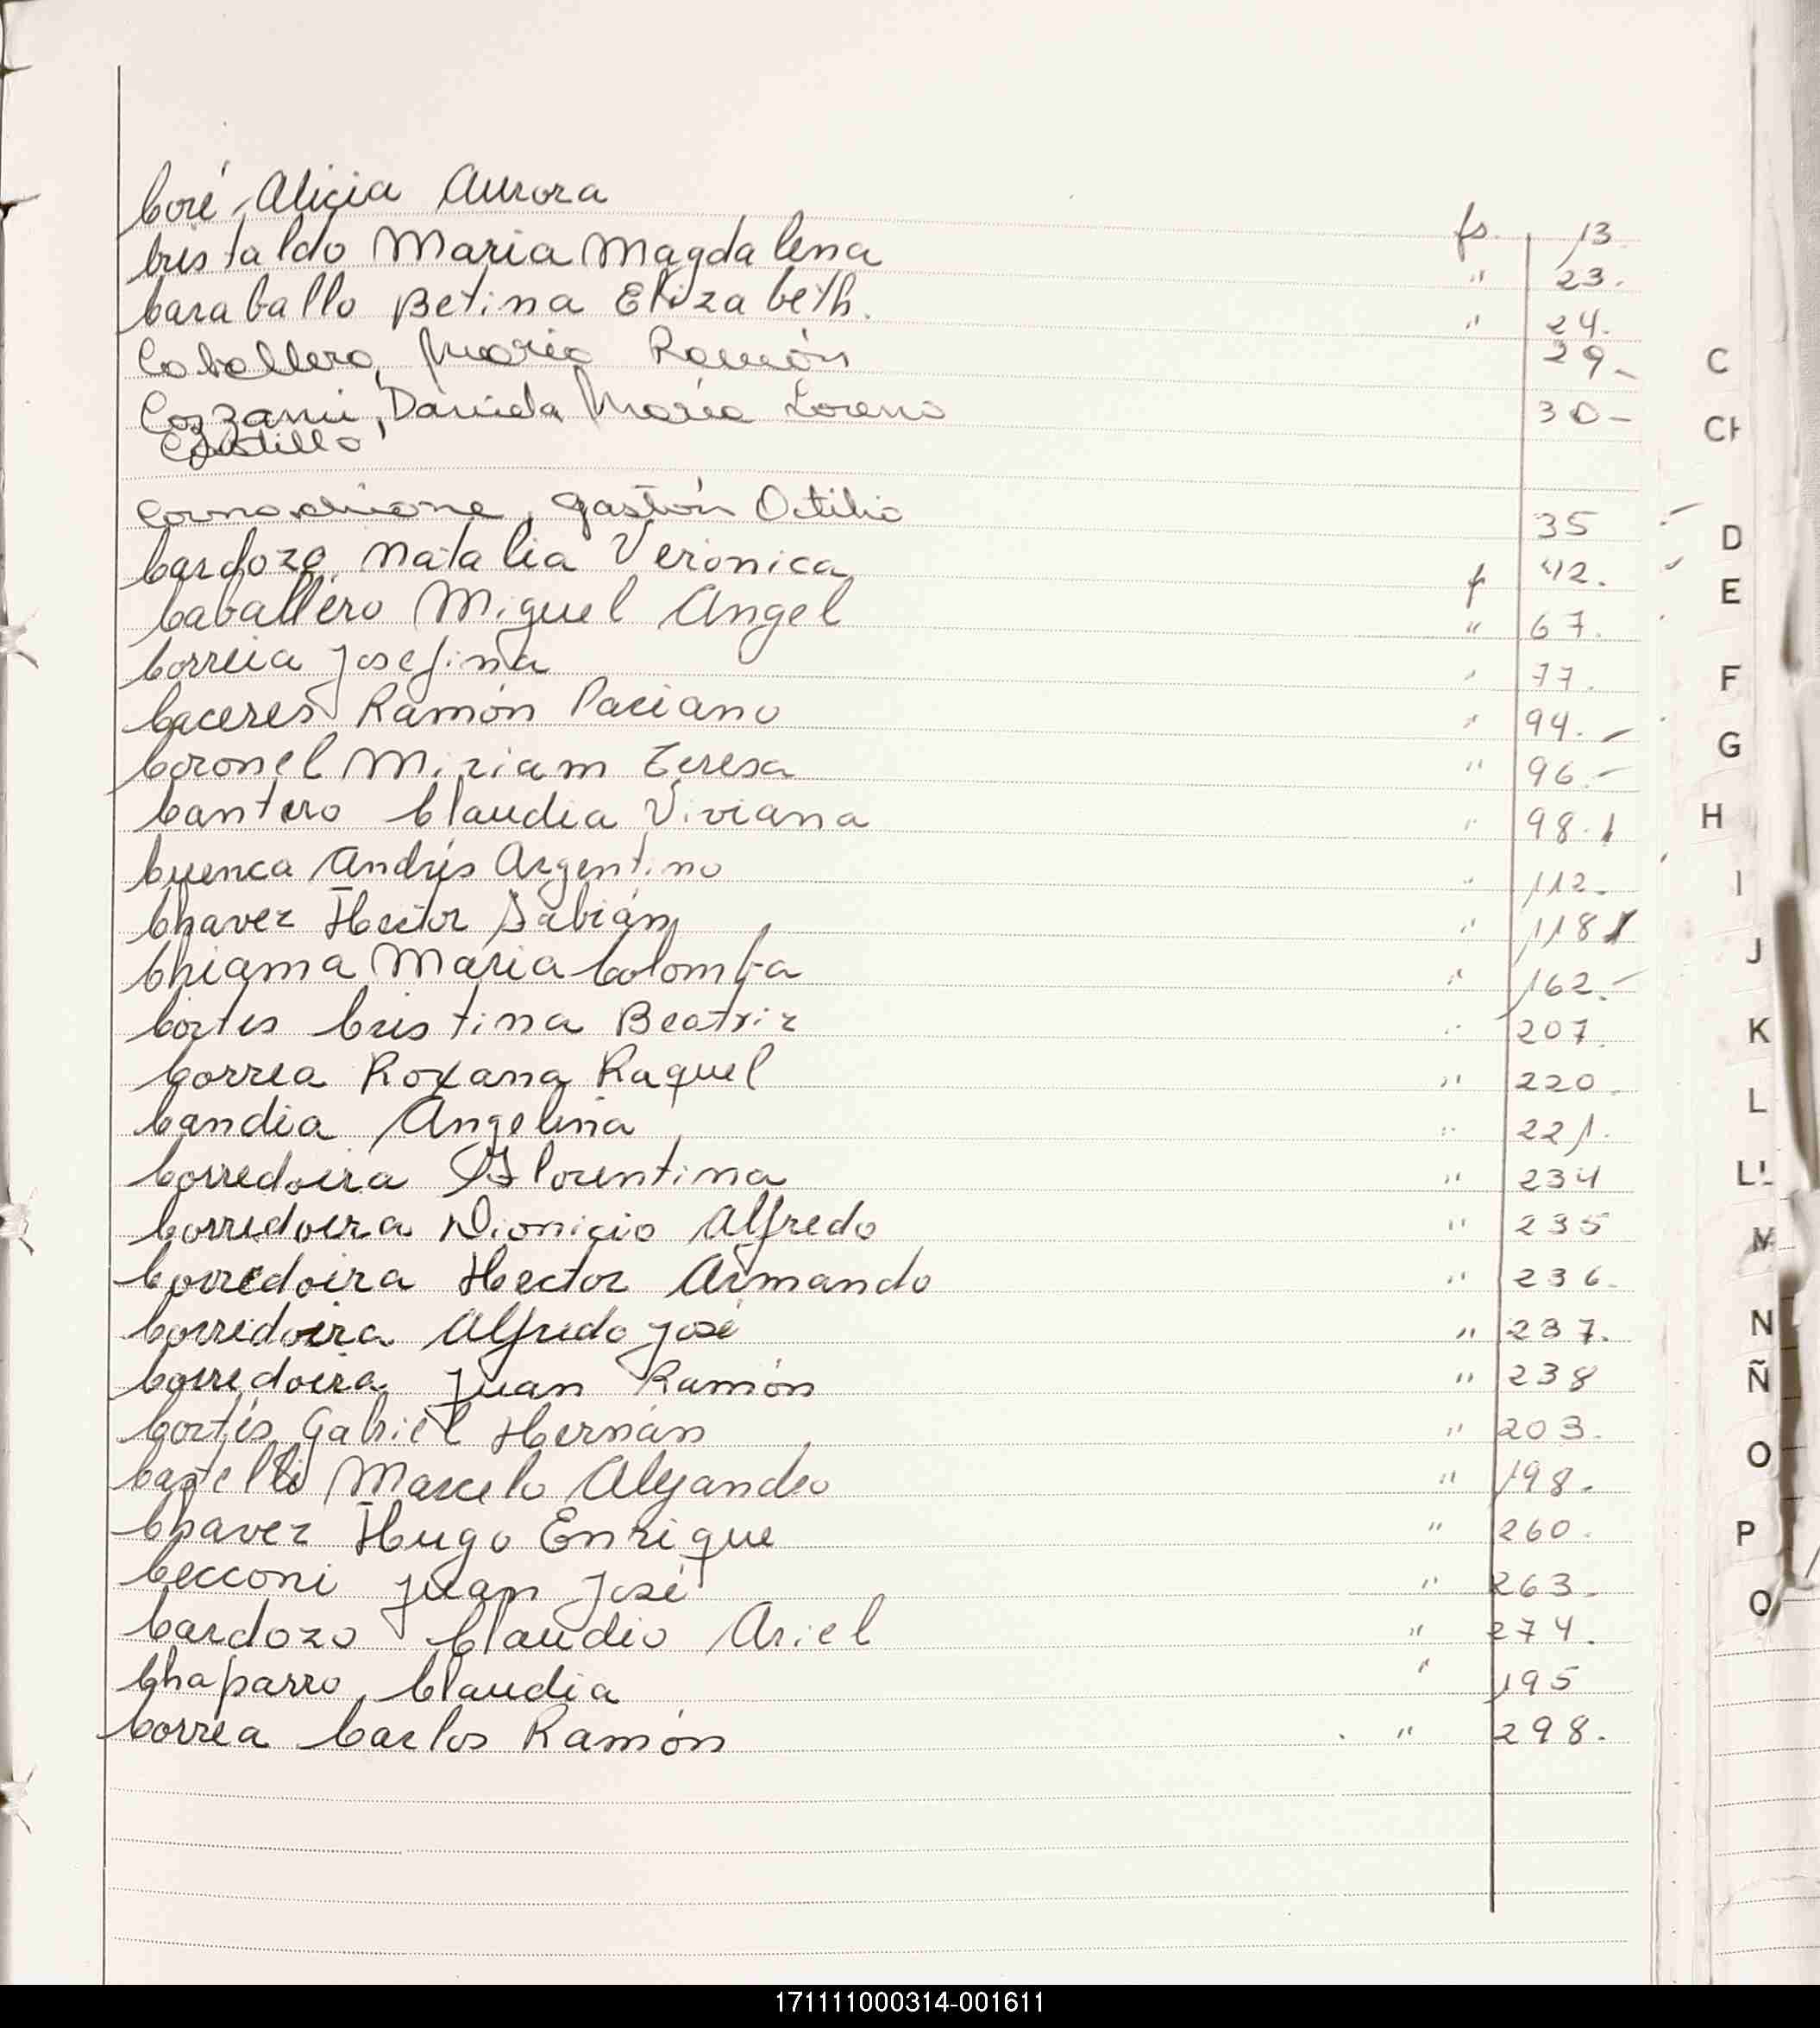 Coré, Alicia Aurora fs. 13.
Cristaldo Maria Magdalena " 23.
Caraballo Betina Elizabeth. " 24.
Caballero, Mario Ramón 29-
Cozzani, Daniela María Lorena 30-
Castillo
Cornachione, Gastón Otilio 35
Cardozo Natalia Verónica f 42.
Caballero Miguel Angel " 67.
Correia Josefina " 77.
Caceres Ramón Paciano " 94.-
Coronel Miriam Teresa " 96.-
Cantero Claudia Viviana " 98.
Cuenca Andrés Argentino " 112.
Chavez Hector Fabián " 118
Chiama Maria Colomba " 162.-
Cortes Cristina Beatriz " 207.
Correa Roxana Raquel " 220.
Candia Angelina " 221.
Corredoira Florentina " 234
Corredoira Dionicio Alfredo " 235
Corredoira Hector Armando " 236.
Corredoira Alfredo José " 237.
Corredoira Juan Ramón " 238
Cortés Gabriel Hernán " 203.
Marcelo Alejandro " 198.
Chavez Hugo Enrique " 260.
Cecconi Juan José " 263.
Cardozo Claudio Ariel " 274.
Chaparro, Claudia " 195
Correa Carlos Ramón " 298.
C
CH
D
E
F
G
H
I
J
K
L
LL
M
N
Ñ
O
P
Q
171111000314-001611